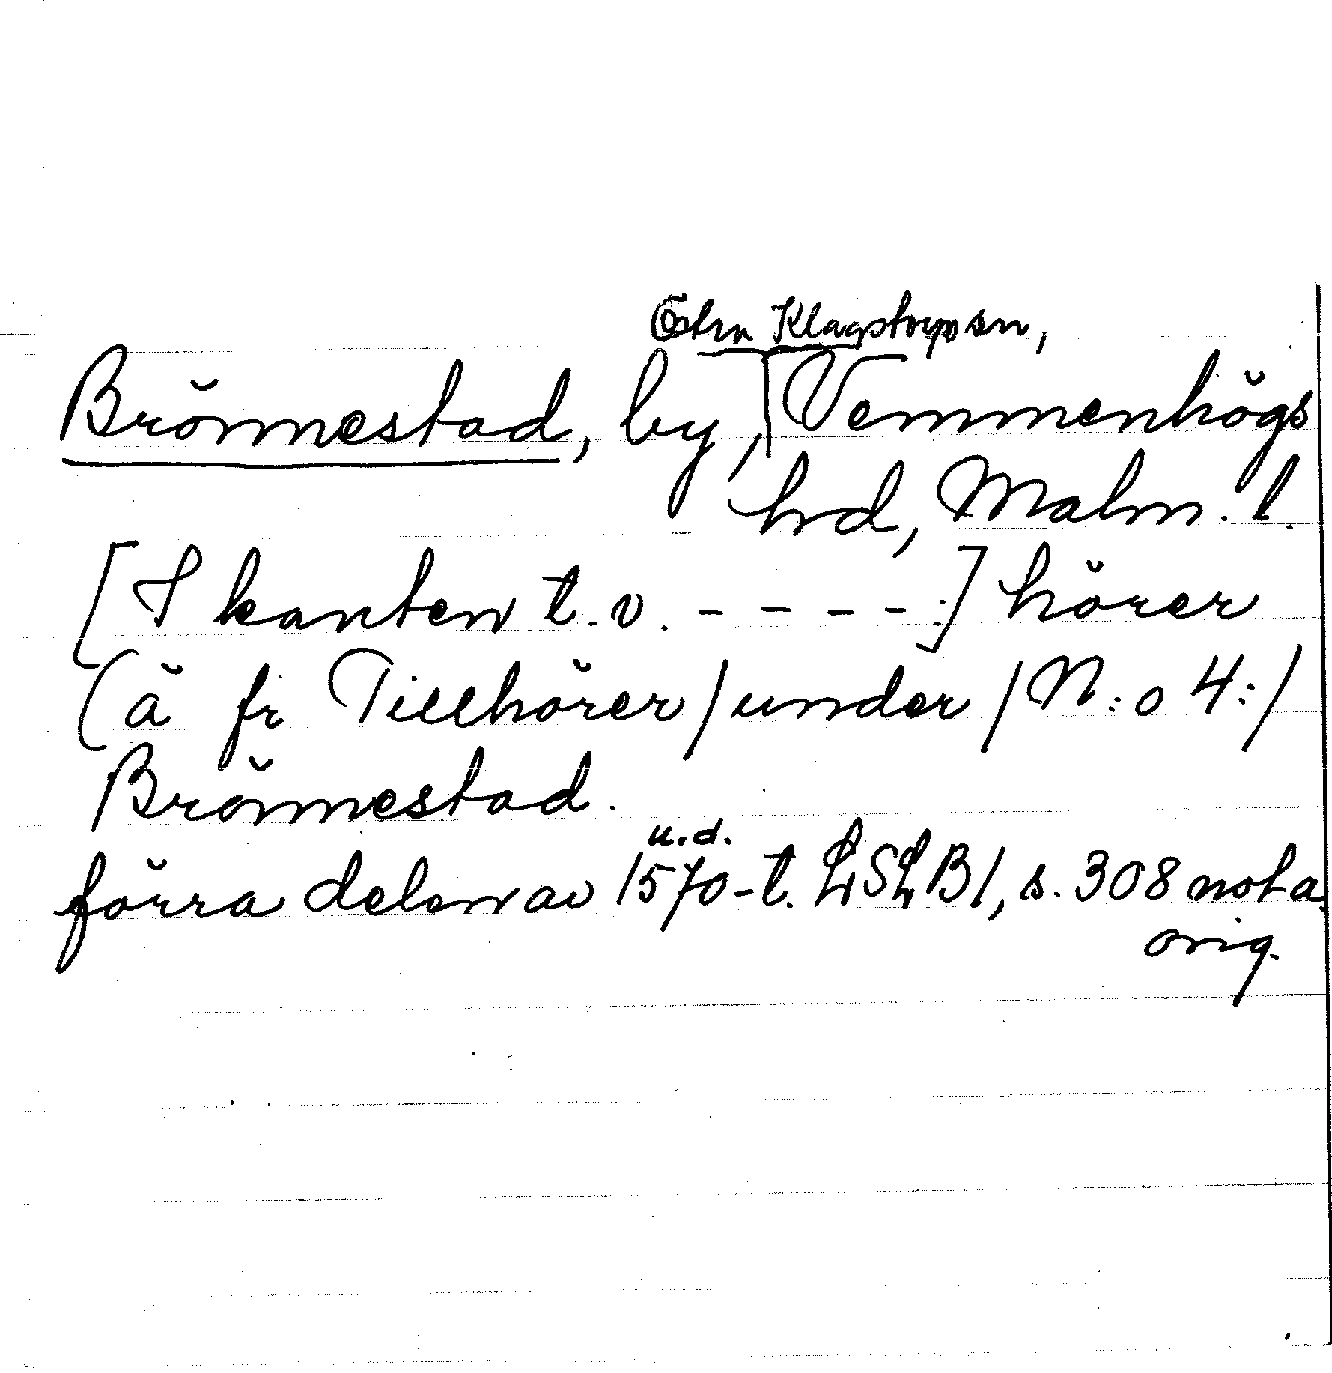 Östra Klagstorps sn,
Brönnestad, by, Vemmenhögs
hrd, Malm. l.
[I kanten t.v. - - - -] hörer
(ä fr Tillhörer/under/N:o 4:/
Brönnestad.
u.d.
förra delen av 1570-t. LSLB1, s. 308 nota
orig.